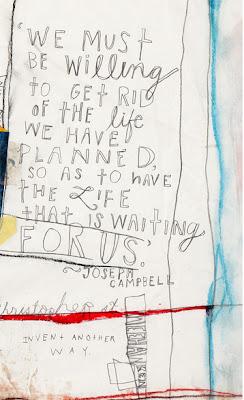 "WE MUST
BE WILLING
to GET RID
OF THE life
WE HAVE
PLANNED,
SO AS to HAVE
THE LIFE
that IS WAITING
FOR US."
~JOSEPH
CAMPBELL
christopher st
INVENT ANOTHER
WAY.